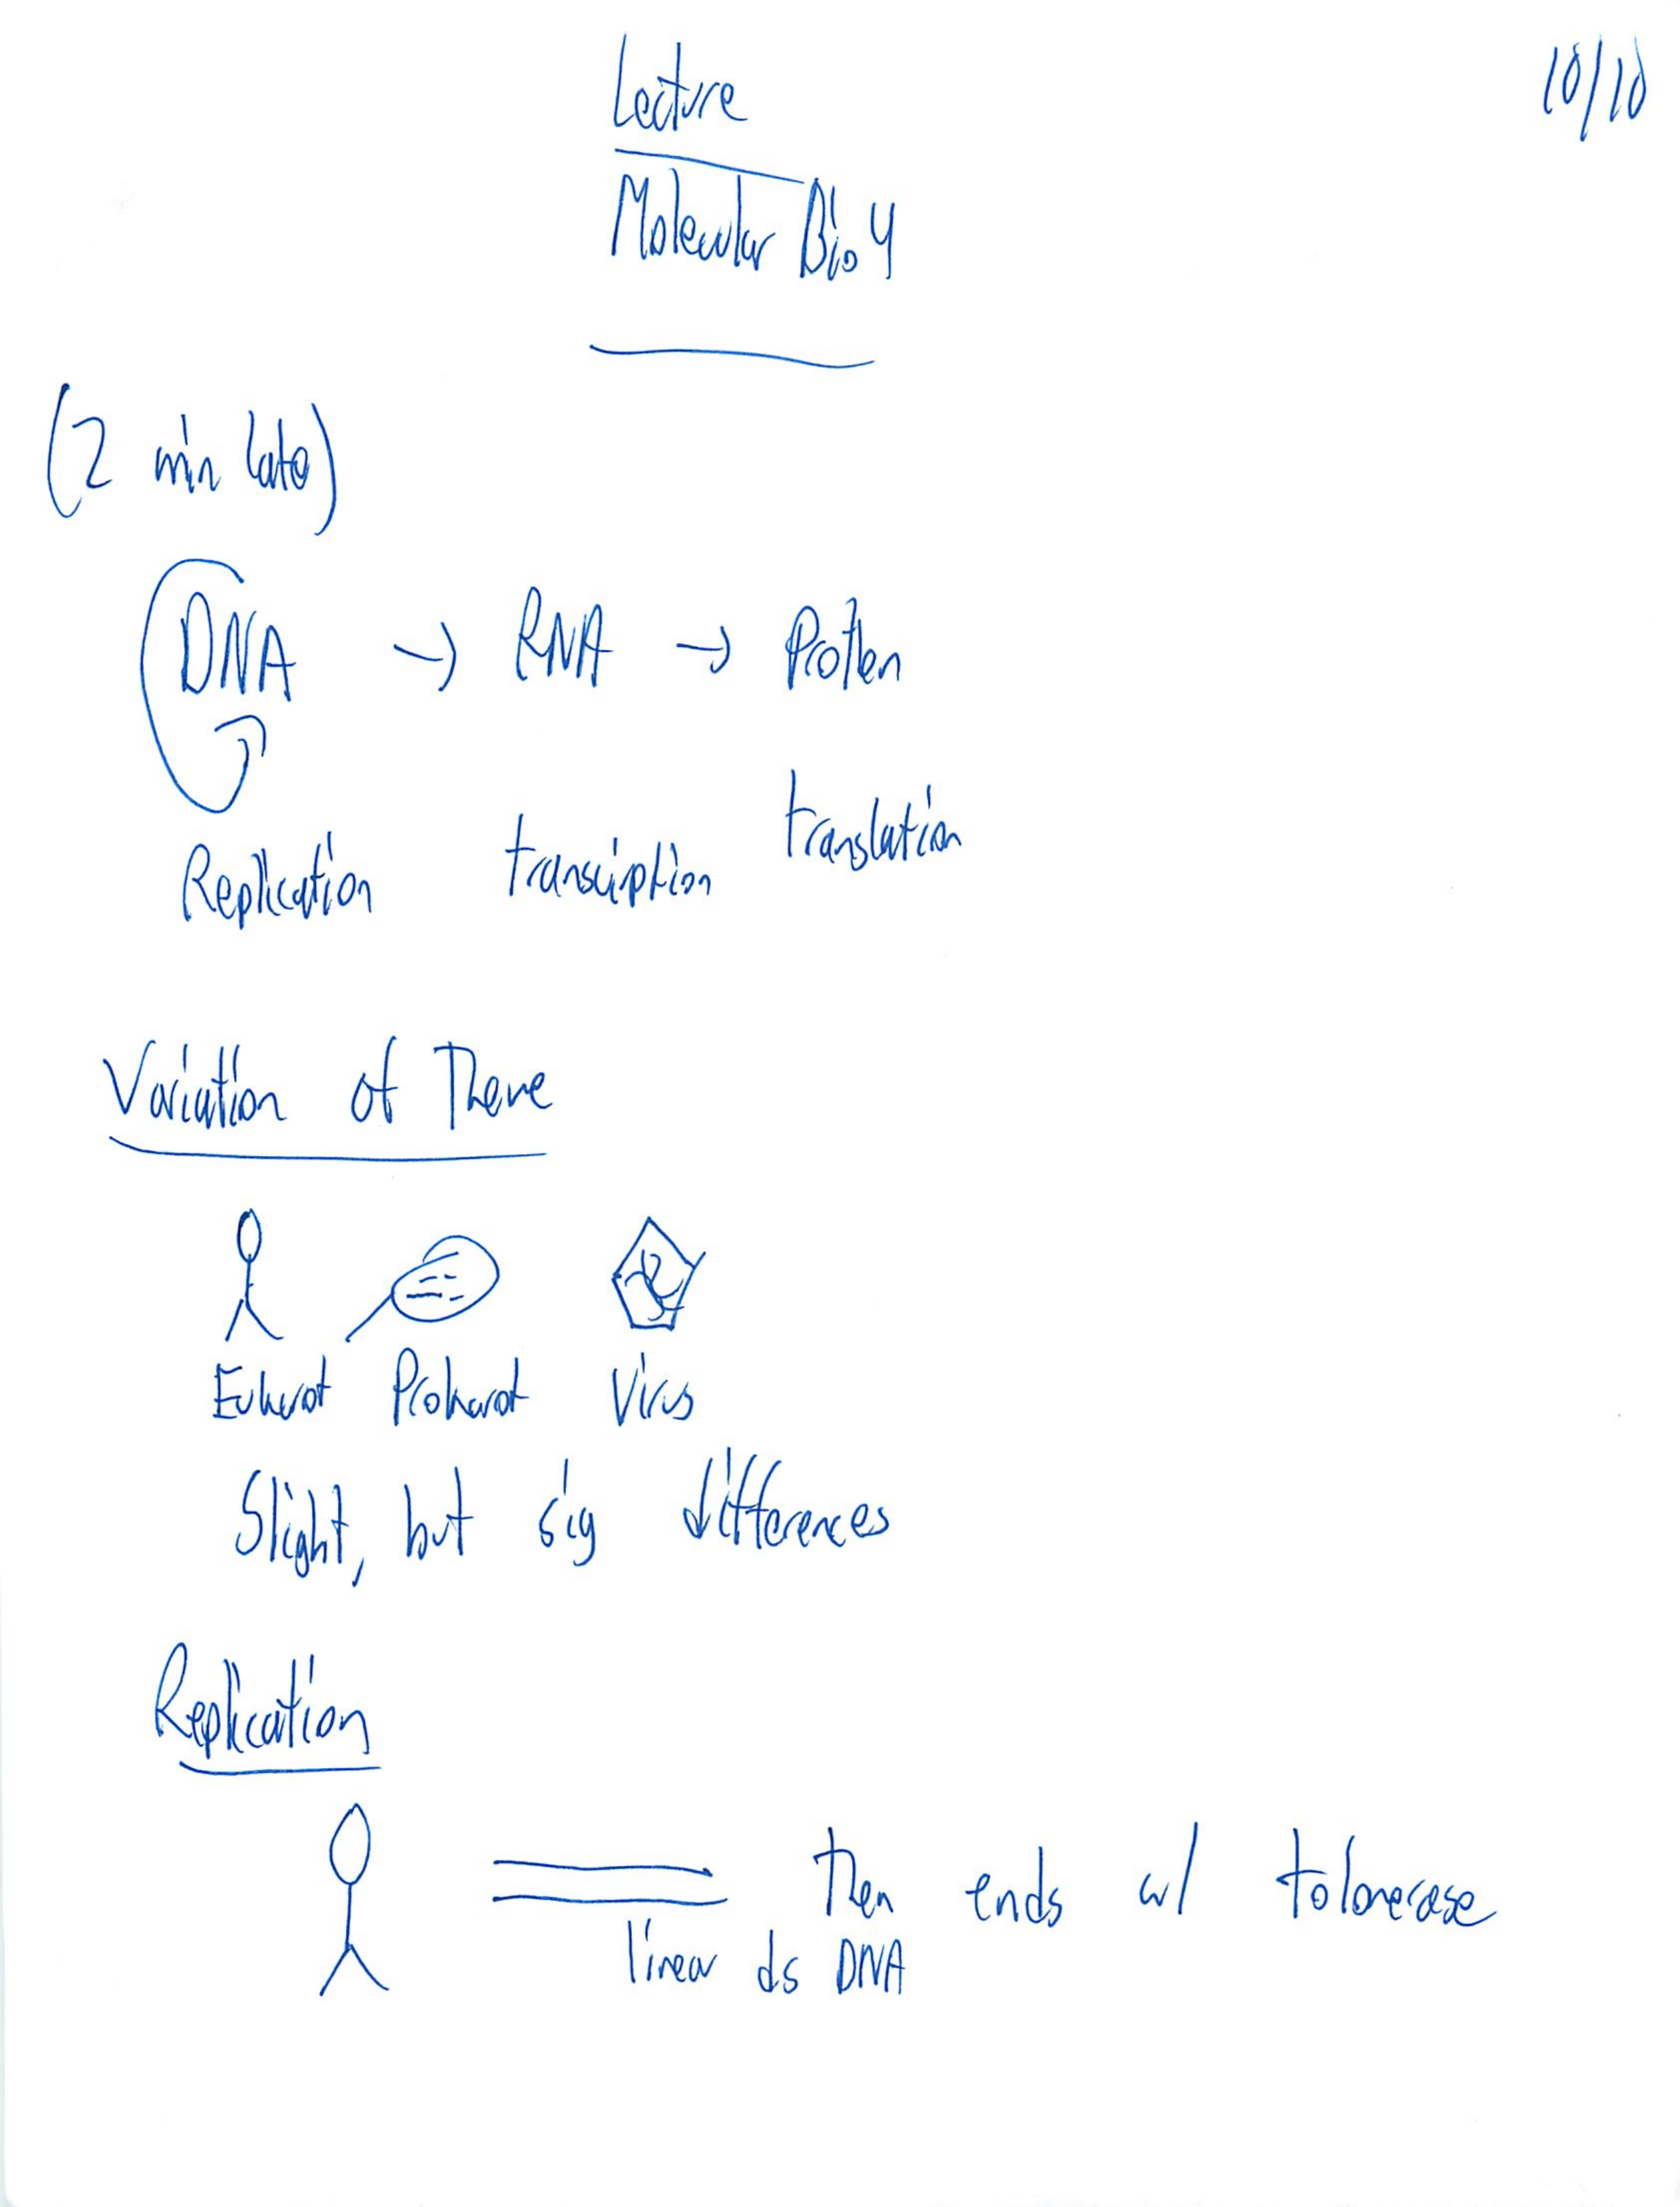 10/10
Lecture
Molecular Bio 4
(2 min late)
DNA → RNA → Protien
Replication transciption translation
Variation of Theme
Eukarot Prokarot Virus
Slight, but sig differences
Replication
Then ends w/ tolomerase
linear ds DNA